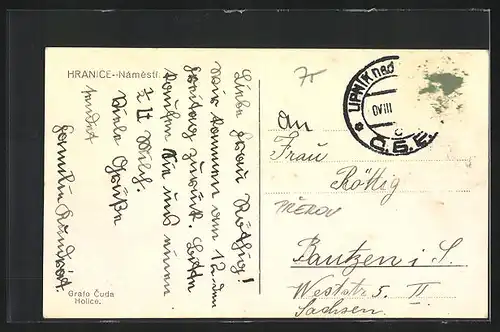 HRANICE--Náměstí.
Liebe Frau Röttig!
Wir kommen am 12. den
Freitag zurück. Bitte
kaufen Sie uns einen
½ Lt Milch.
Viele Grüße
sendet
Familie
Grafo Čuda
Holice.
75
LIPNÍK nad
VIII
c
Č.S.R.
An
Frau
Röttig
Bautzen i S.
Weststr. 5. II
Sachsen.